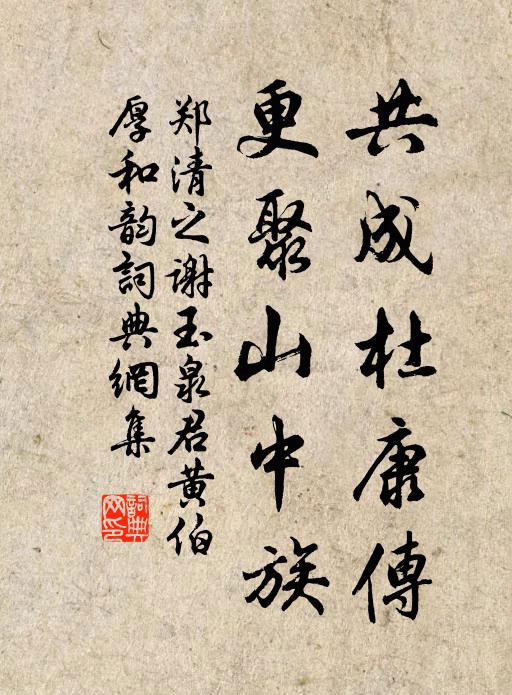 共成杜康傳
更聚山中族
郑清之谢玉泉君黄伯
厚和韵詞典網集
詞典
网印